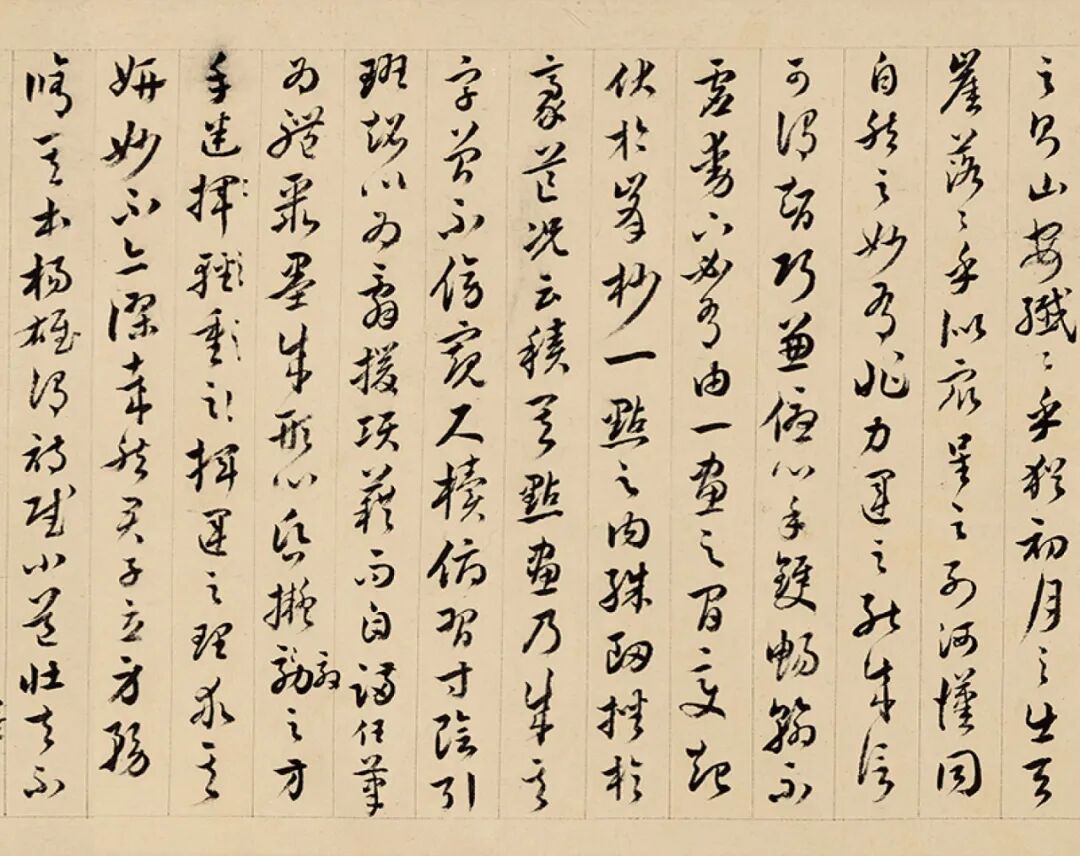 之則山安纖々乎猶初月之出天
崖落々乎似衆星之列河漢同
自然之妙有非力運之能成信
可謂智巧兼優心手雙暢翰不
虛動下必有由一畫之間變起
伏於峯杪一點之內殊衄挫於
豪芒況云積其點畫乃成其
字曾不傍窺尺牘俯習寸陰引
班超以為辭援項籍而自滿任筆
為體聚墨成形心昏擬效之方
手迷揮運之理求其
妍妙不亦謬哉然君子立身務
脩其本楊雄謂詩賦小道壯夫不